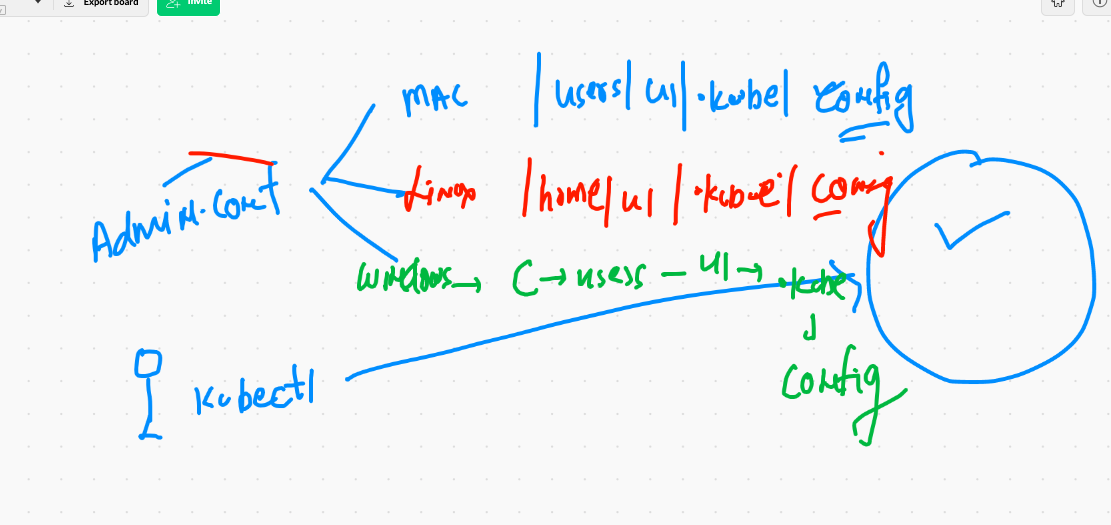 Export board
Invite
MAC /users/u1/.kube/ config
Admin.conf
Linux /home/u1/.kube/ config
windows → C → users — u1 → .kube
↓
config
kubectl